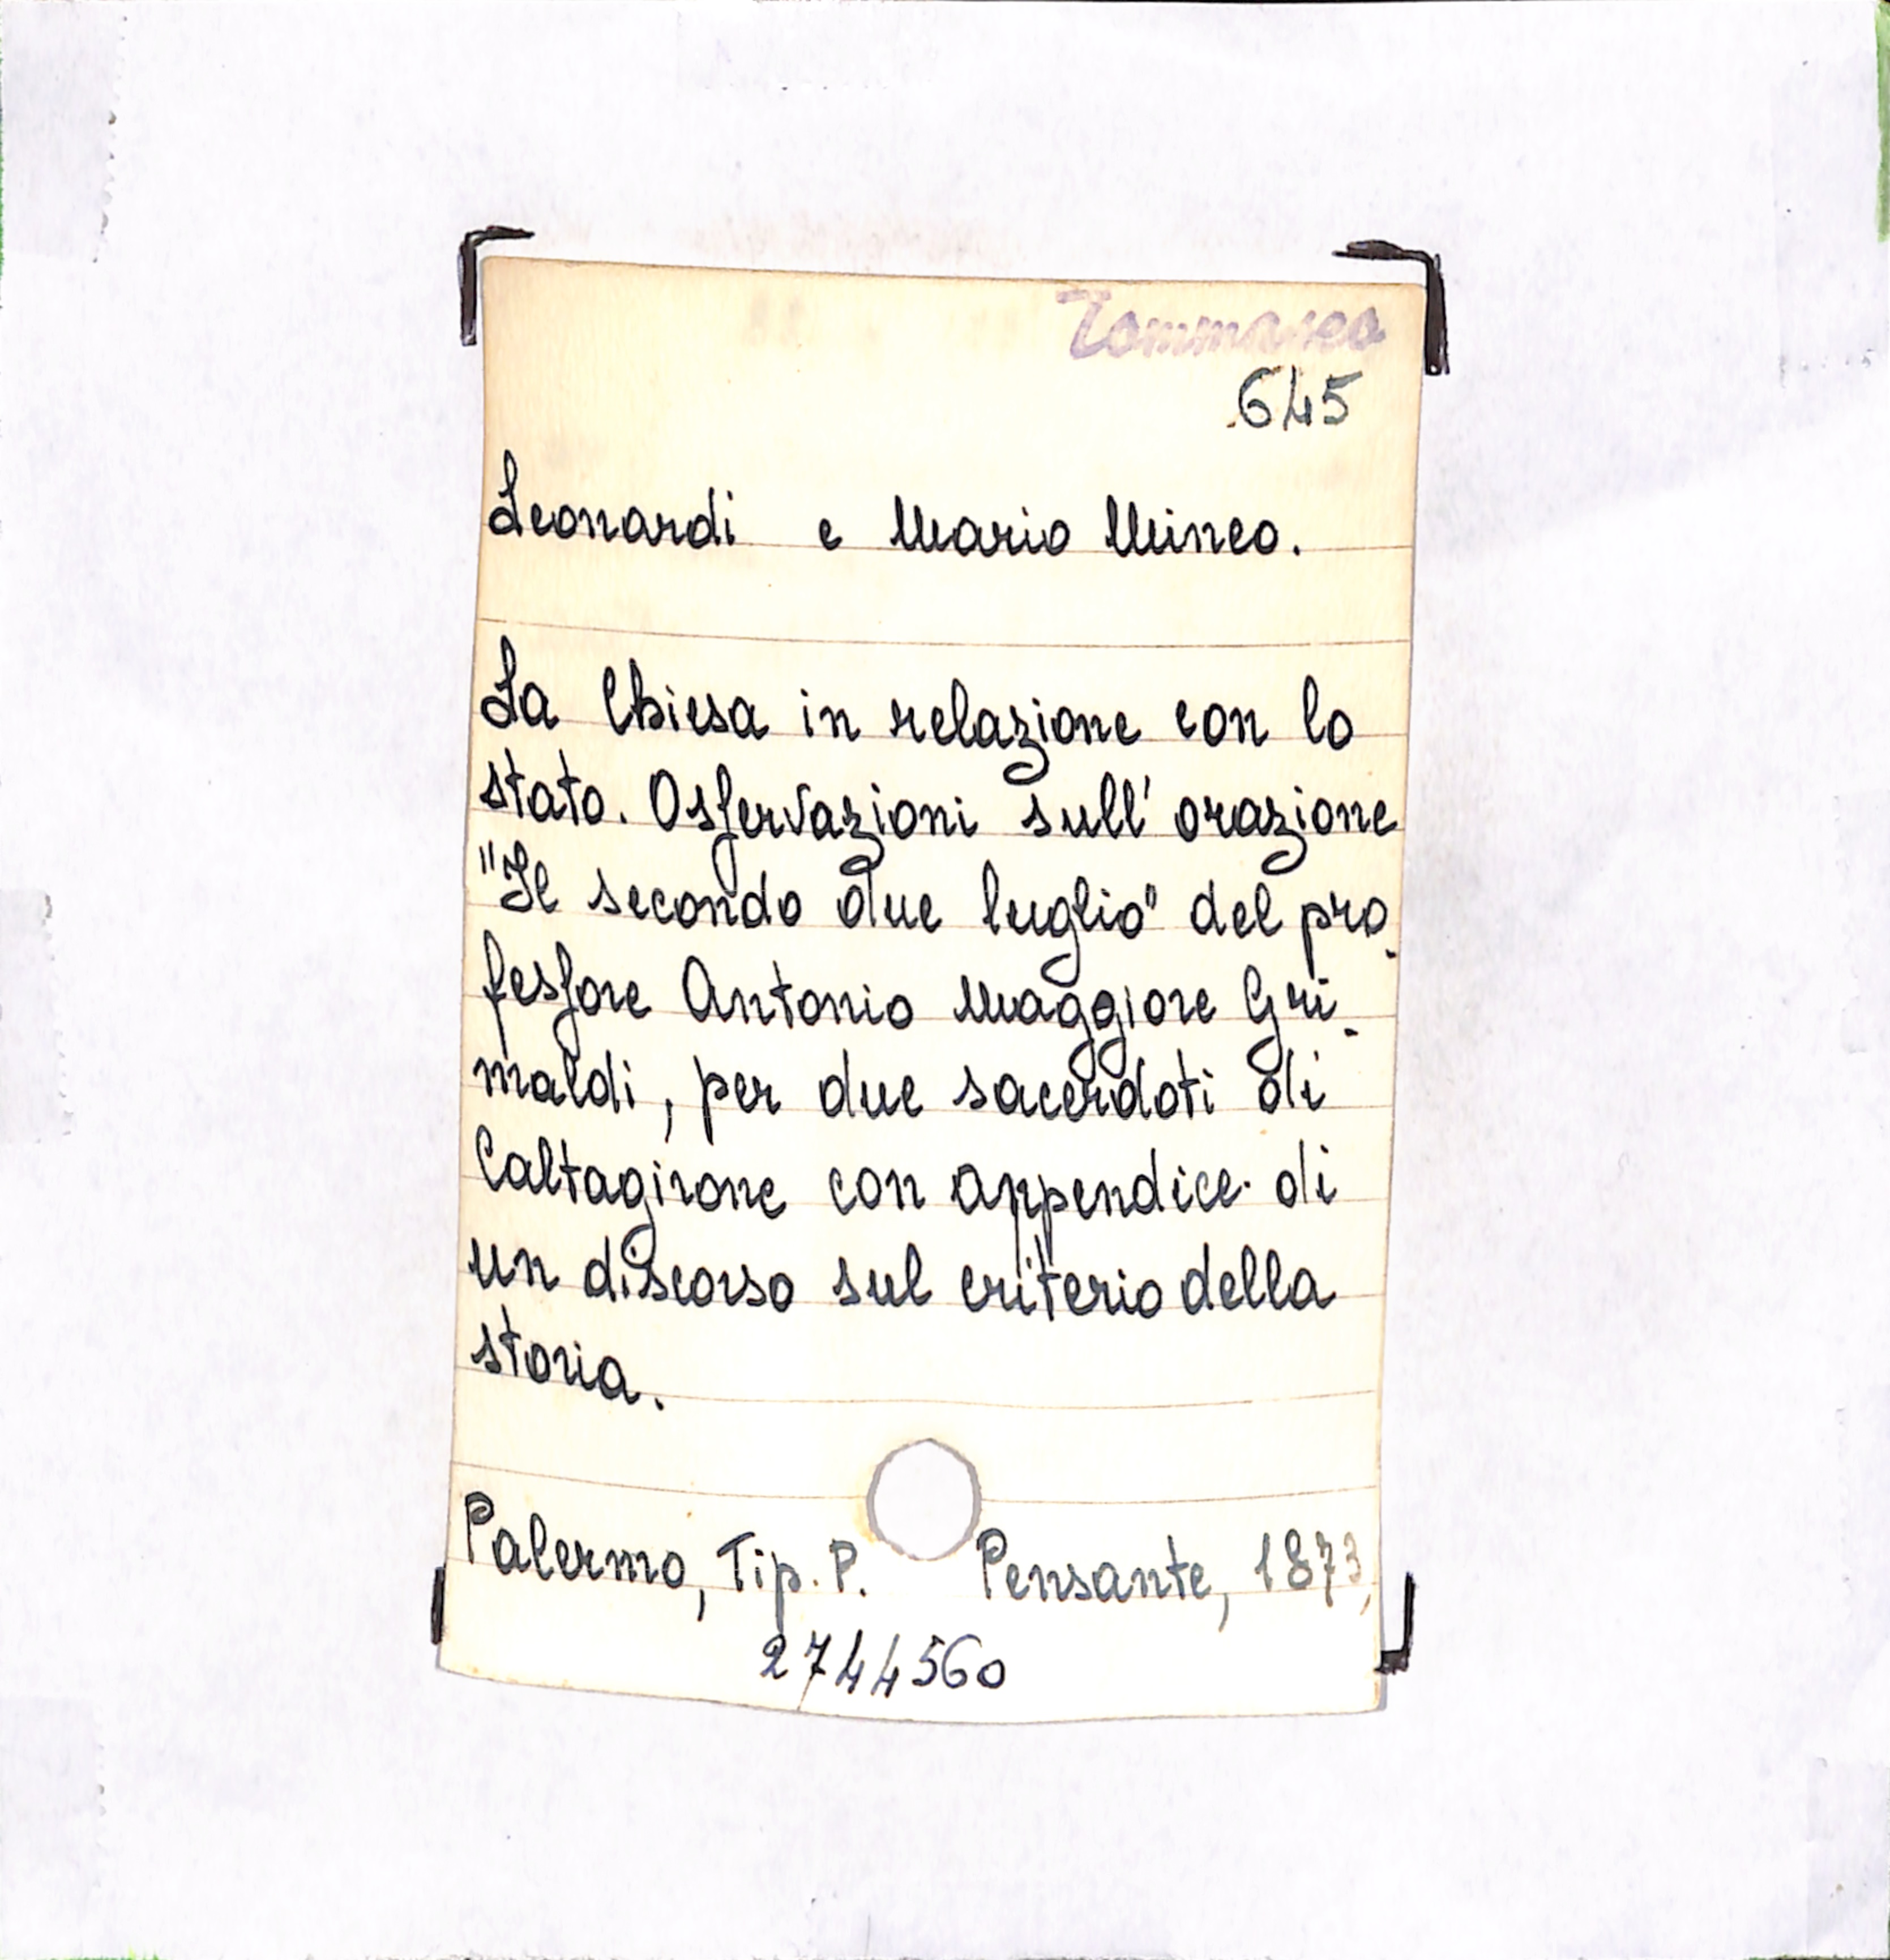 Tommaseo
645
Leonardi e Mario Mineo.
La Chiesa in relazione con lo
stato. Osservazioni sull' orazione
"Il secondo due luglio" del pro-
fessore Antonio Maggiore Gri-
maldi, per due sacerdoti di
Caltagirone con appendice di
un discorso sul criterio della
storia.
Palermo, Tip. P. Pensante, 1873,
2744560